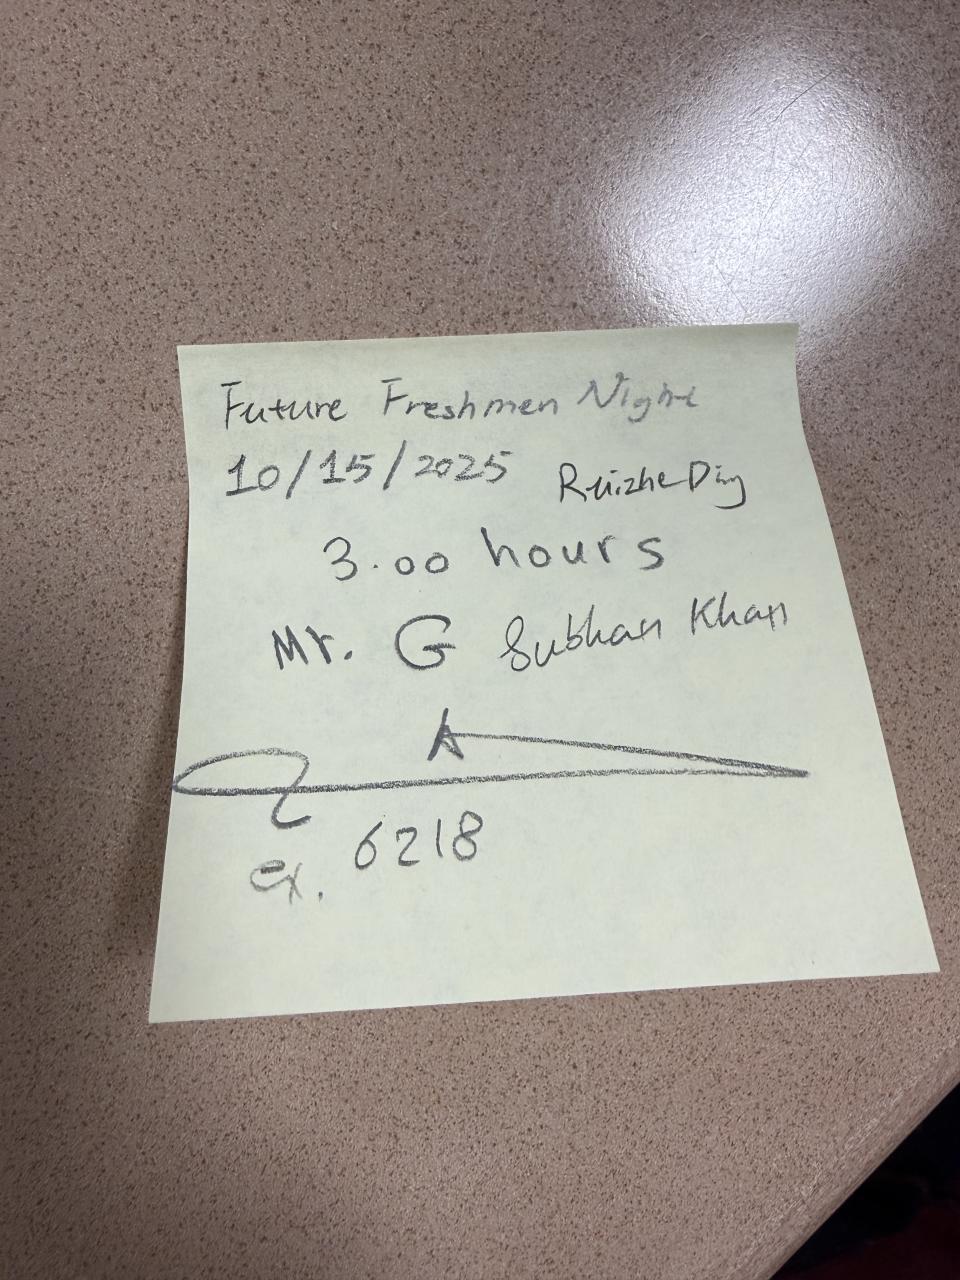 Future Freshmen Night
10/15/2025 Ruizhe Ding
3.00 hours
Mr. G Subhan Khan
ex. 6218